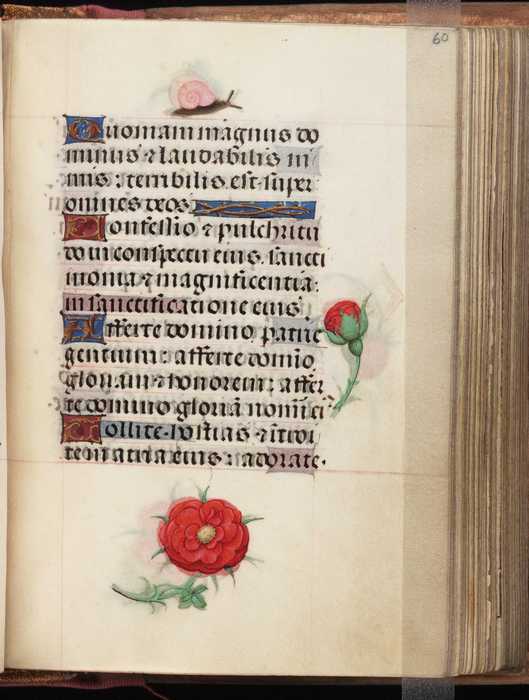 60
Quoniam magnus do
minus ⁊ laudabilis ni
mis: terribilis est super
omnes deos.
Confessio ⁊ pulchritu
do in conspectu eius. sancti
monia ⁊ magnificentia:
in sanctificatione eius
Afferte domino patrie
gentium: afferte domīo
gloriam ⁊ honorem: affer
te domino gloriā nomī ei
Tollite hostias ⁊ ītroi
te in atria eius: adorate